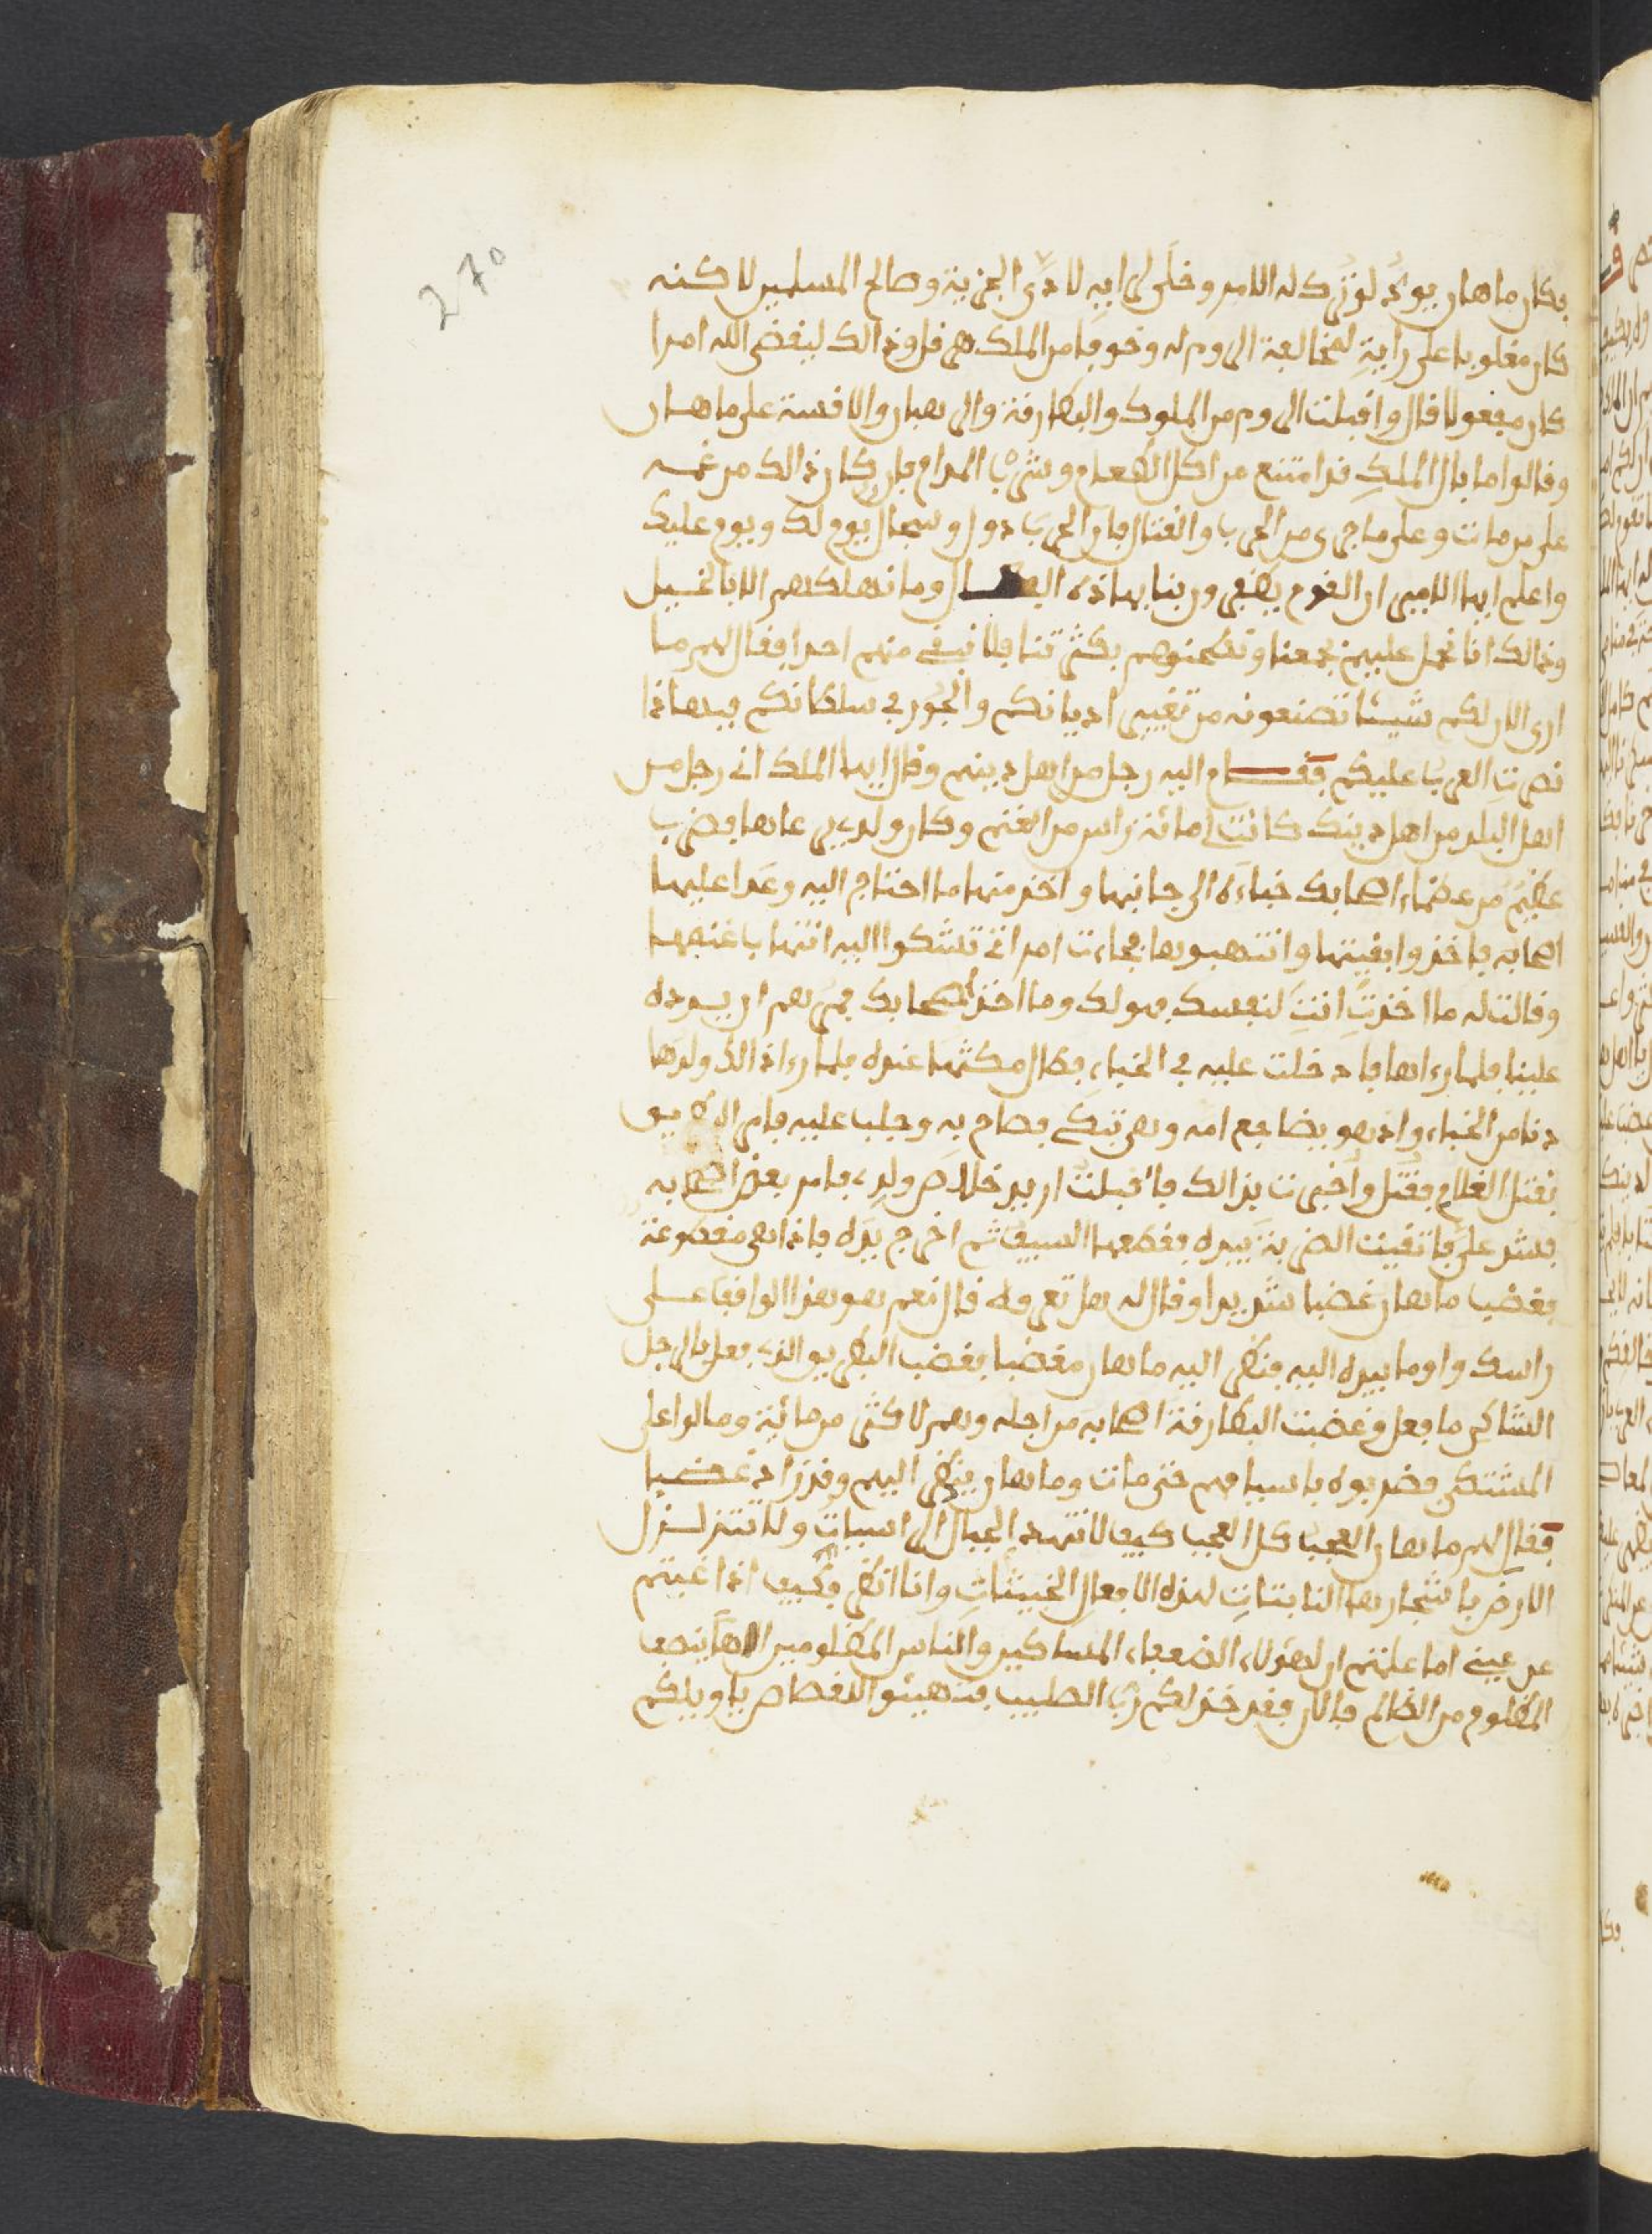 270
فكان ماهان يود لو ترك له الامر وخلى لرايه لادى الجزية وصالح المسلمين لاكنه
كان مغلوبا على رايه لمخالفة الروم له وخوفا من الملك هرقل وذالك ليقضى الله امرا
كان مفعولا قال واقبلت الروم من الملوك والبطارقة والرهبان والاقسة على ماهان
وقالوا ما بال الملك قد امتنع من اكل الطعام وشرب المدام فان كان ذالك من غمه
على من مات وعلى ما جرى من الحرب والقتال فان الحرب دول وسجال يوم لك ويوم عليك
واعلم ايها الامير ان القوم يظفرون بنا بهاذه وما نهلكهم الا بالخيل
وذالك انا نحمل عليهم بجمعنا ونطحنوهم بكثرتنا فلا نبقى منهم احدا فقال لهم ما
ارى الان لكم شيئا تصنعونه من تغيير اديانكم والجور في سلطانكم فبهاذا
نصرت العرب عليكم فقام اليه رجل من اهل دينهم وقال ايها الملك اني رجل من
اهل البلد من اهل دينك كانت لى مائة راس من الغنم وكان ولدى يرعاها فضرب
عظيم من عظماء اصحابك خباءه الى جانبها واخذ منها ما احتاج اليه وعدا عليها
اصحابه فاخذوا بقيتها وانتهبوها فجاءت امراتى تشكوا اليه انتهاب غنمها
وقالت له ما اخذت انت لنفسك فهو لك وما اخذ اصحابك فمرهم ان يردوه
علينا فلما رءاها فادخلت عليه في الخباء فطال مكثها عنده فلما رءا ذالك ولدها
دنا من الخباء واذ هو يضاجع امه وهي تبكي فصاح به وجلب عليه فامر البطريق
بقتل الغلام فقتل واخبرت بذالك فاقبلت اريد خلاص ولدى فامر بعض اصحابه
فشد علي فاتقيت الضربة بيده فقطعها السيف ثم اخرج يده فاذا هى مقطوعة
فغضب ماهان غضبا شديدا وقال له هل تعرفه قال نعم هو هذا الواقف على
راسك واوما بيده اليه فنظر اليه ماهان مغضبا فغضب البطريق الذى فعل بالرجل
الشاكي ما فعل وغضبت البطارقة اصحابه من اجله وهم لاكثر من مائة ومالوا على
المشتكى فضربوه باسيافهم حتى مات وماهان ينظر اليهم وقد زاد غضبا
فقال لهم ماهان العجب كل العجب كيف لا تنهد الجبال الراسيات ولا تتزلزل
الارض باشجارها النابتات لهذه الافعال الخبيثات وانا انظر فكيف اذا غبتم
عن عينى اما علمتم ان لهؤلاء الضعفاء المساكين والناس المظلومين الاها ينصف
المظلوم من الظالم فالان فقد خذلكم رب الصليب فتهيئو الاقصاص ياويلكم